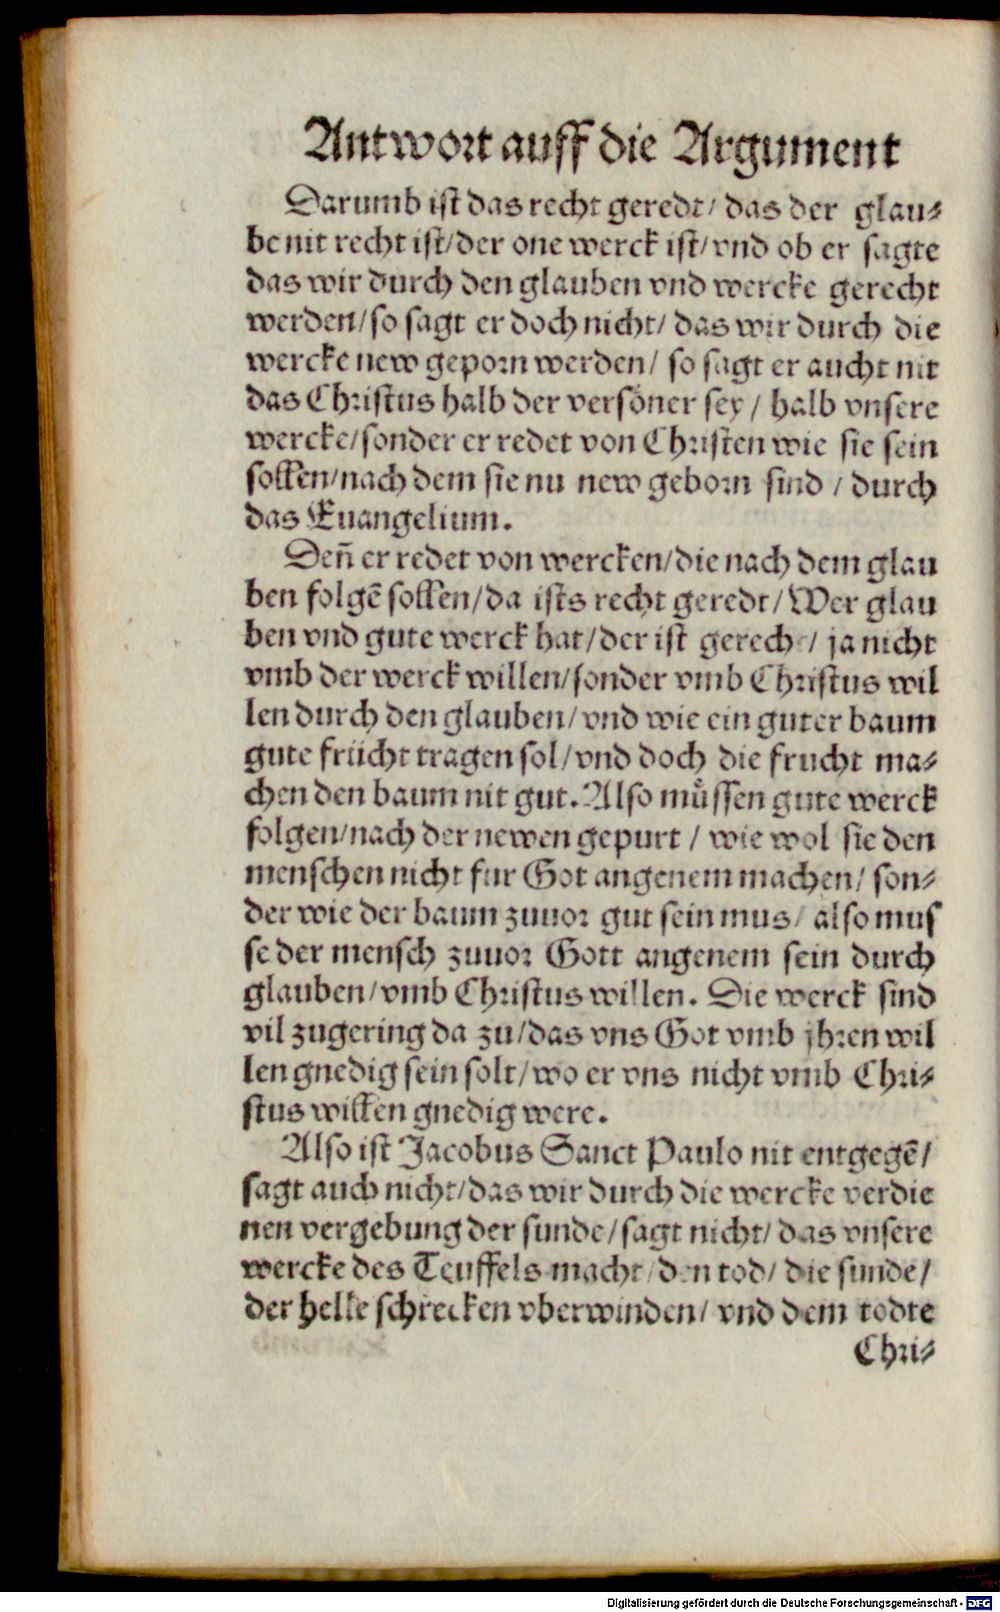 Antwort auff die Argument
Darumb ist das recht geredt/ das der glau⸗
be nit recht ist/der one werck ist/vnd ob er sagte
das wir durch den glauben vnd wercke gerecht
werden/so sagt er doch nicht/ das wir durch die
wercke new geporn werden/ so sagt er aucht nit
das Christus halb der versöner sey / halb vnsere
wercke/sonder er redet von Christen wie sie sein
sollen/nach dem sie nu new geborn sind / durch
das Euangelium.
Den̄ er redet von wercken/die nach dem glau
ben folgē sollen/da ists recht geredt/ Wer glau
ben vnd gute werck hat/der ist gerech / ja nicht
vmb der werck willen/sonder vmb Christus wil
len durch den glauben/ vnd wie ein guter baum
gute frücht tragen sol/vnd doch die frucht ma⸗
chen den baum nit gut. Also müssen gute werck
folgen/nach der newen gepurt / wie wol sie den
menschen nicht fur Got angenem machen/ son⸗
der wie der baum zuuor gut sein mus/ also mus
se der mensch zuuor Gott angenem sein durch
glauben/vmb Christus willen. Die werck sind
vil zugering da zu/das vns Got vmb jhren wil
len gnedig sein solt/wo er vns nicht vmb Chri⸗
stus willen gnedig were.
Also ist Jacobus Sanct Paulo nit entgegē/
sagt auch nicht/das wir durch die wercke verdie
nen vergebung der sunde/sagt nicht/ das vnsere
wercke des Teuffels macht/ den tod/ die sunde/
der helle schrecken vberwinden/ vnd dem todte
Chri⸗
Digitalisierung gefördert durch die Deutsche Forschungsgemeinschaft - DFG